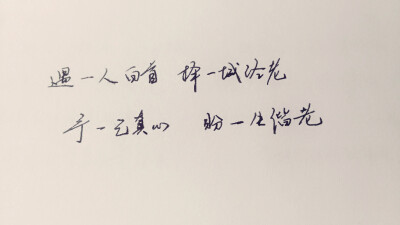 遇一人白首 择一城终老
予一己真心 盼一生偕老